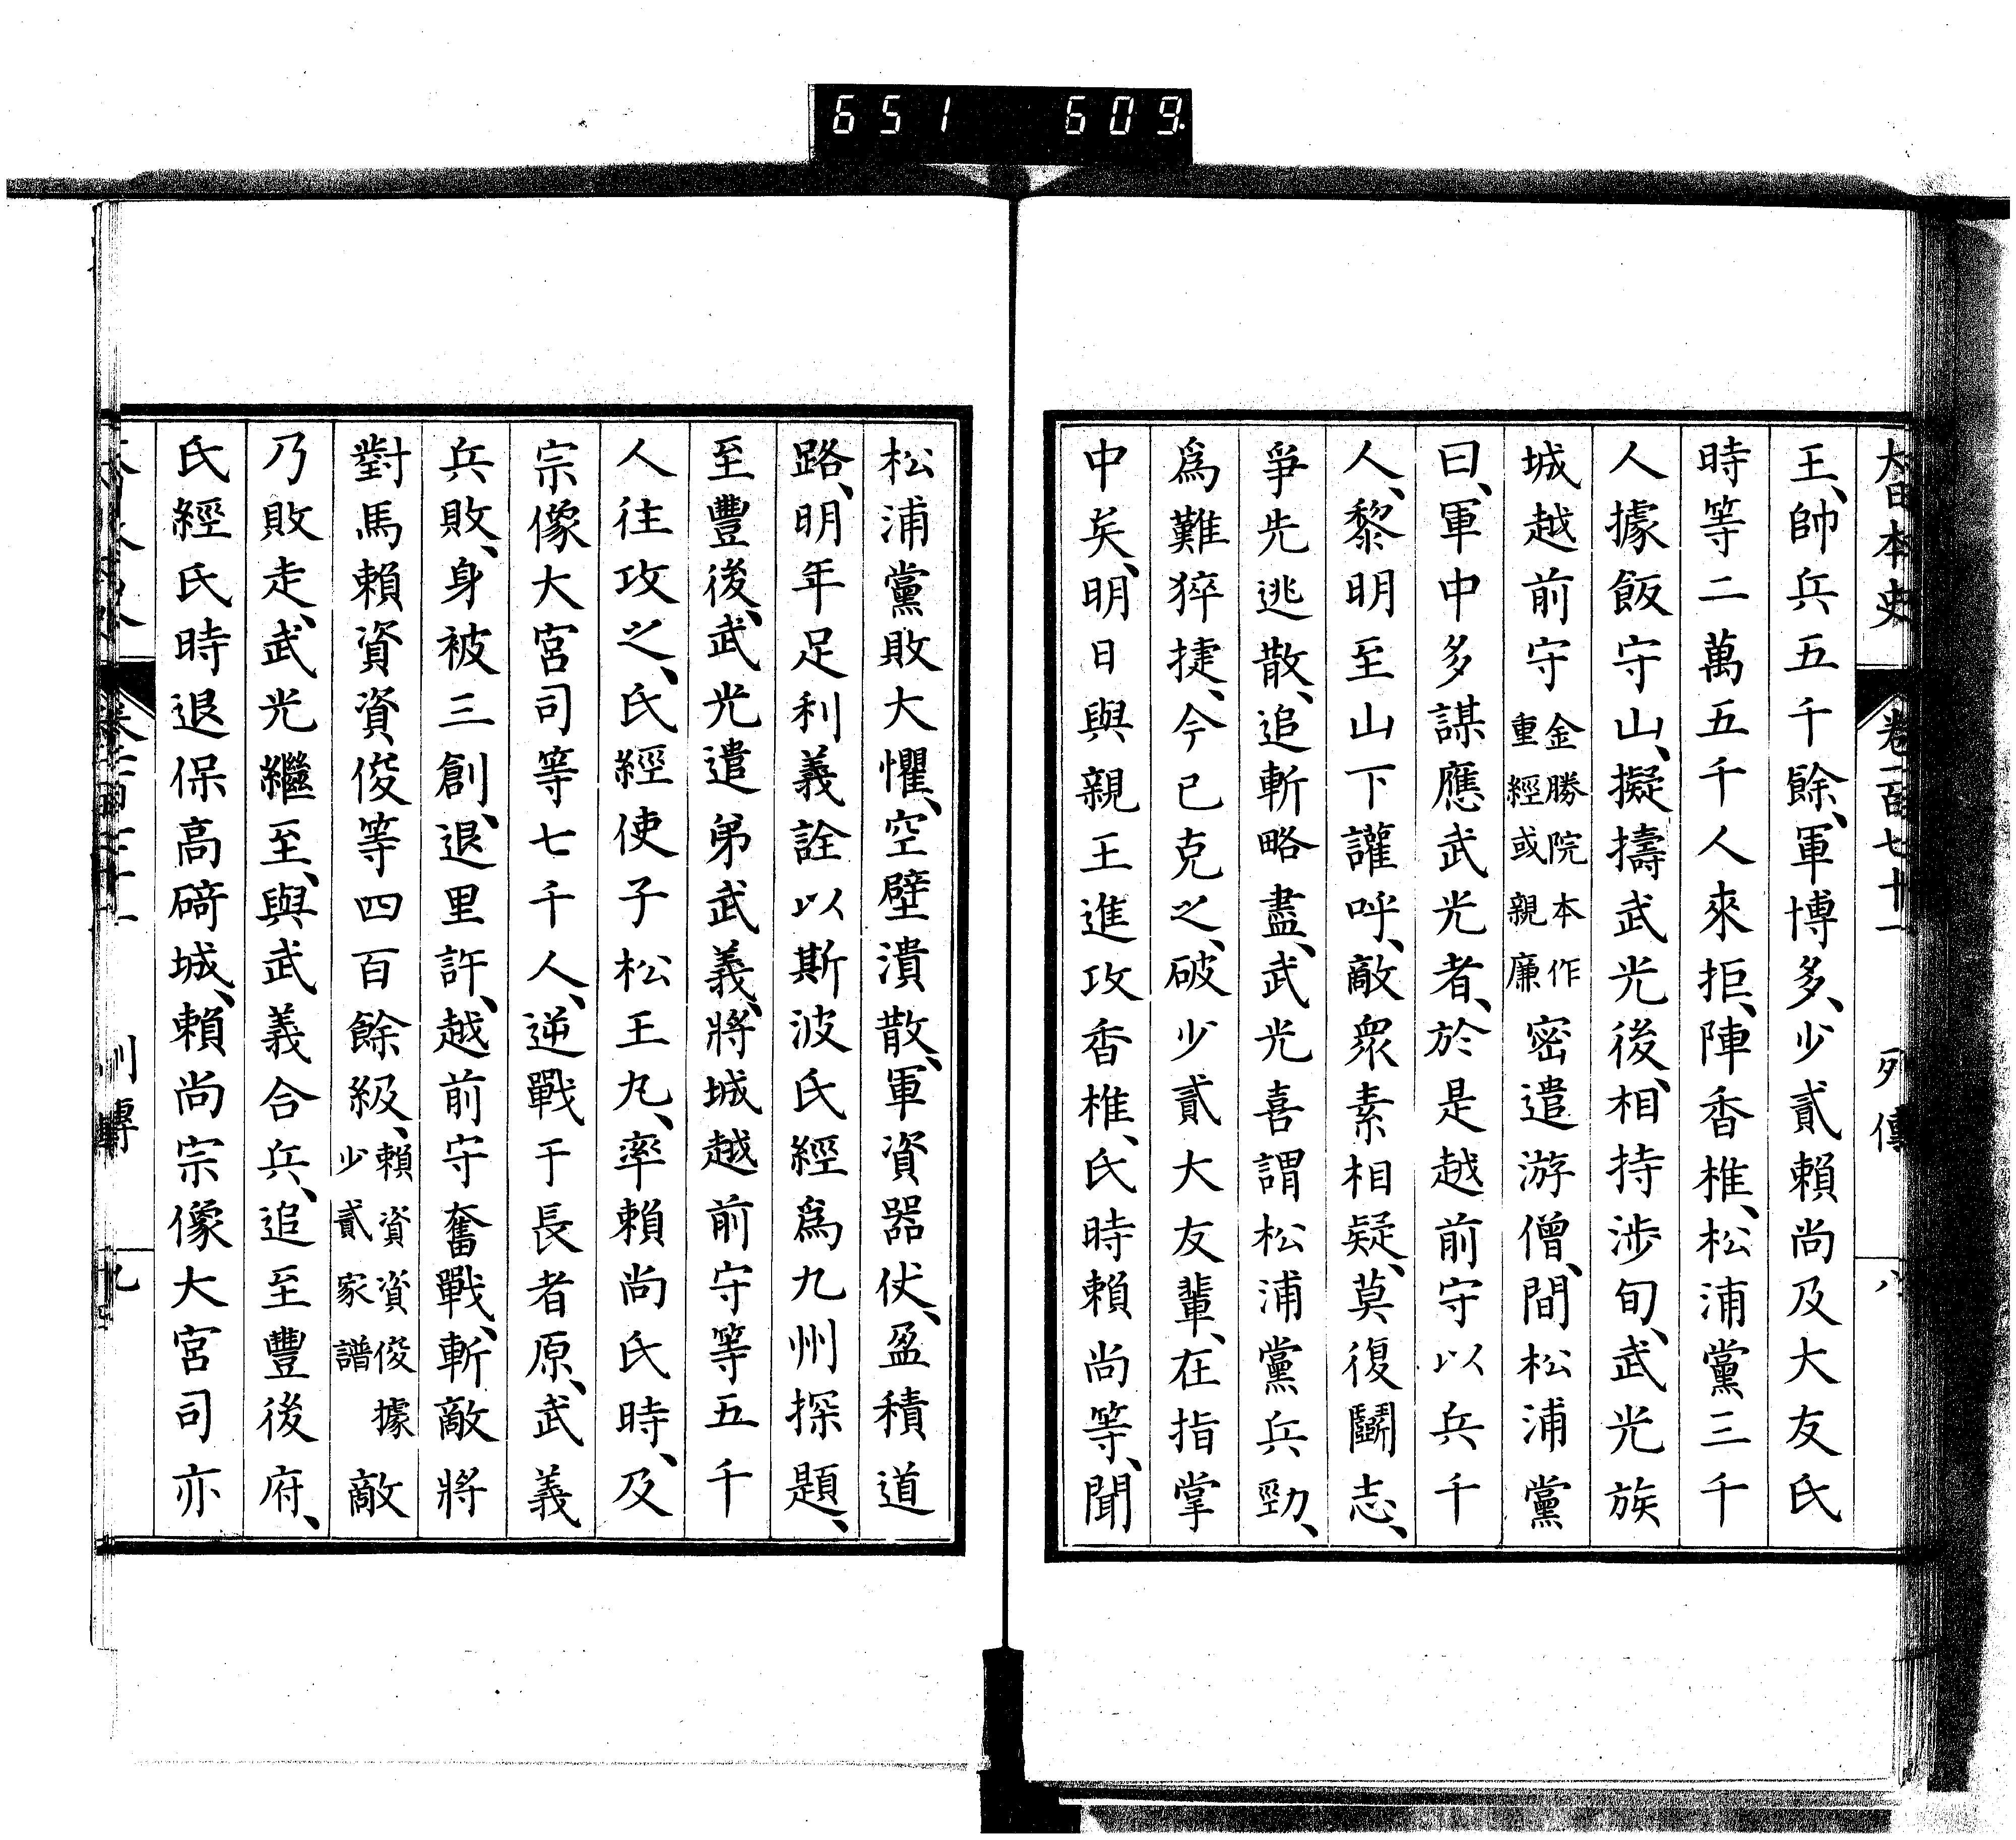 651 609
大日本史 卷二百七十一 列傳 八
王、帥兵五千餘、軍博多、少貳賴尚及大友氏
時等二萬五千人來拒、陣香椎、松浦黨三千
人據飯守山、擬擣武光後、相持涉旬、武光族
城越前守金勝院本作重經或親廉密遣游僧、間松浦黨
曰、軍中多謀應武光者、於是越前守以兵千
人、黎明至山下讙呼、敵衆素相疑、莫復鬭志、
爭先逃散、追斬略盡、武光喜謂松浦黨兵勁、
爲難猝捷、今已克之、破少貳大友輩、在指掌
中矣、明日與親王進攻香椎、氏時賴尚等、聞
松浦黨敗大懼、空壁潰散、軍資器仗、盈積道
路、明年足利義詮以斯波氏經爲九州探題、
至豐後、武光遣弟武義、將城越前守等五千
人往攻之、氏經使子松王丸、率賴尚氏時、及
宗像大宮司等七千人、逆戰于長者原、武義
兵敗、身被三創、退里許、越前守奮戰、斬敵將
對馬賴資資俊等四百餘級、賴資資俊據少貳家譜敵
乃敗走、武光繼至、與武義合兵、追至豐後府、
氏經氏時退保高碕城、賴尚宗像大宮司亦
列傳 九